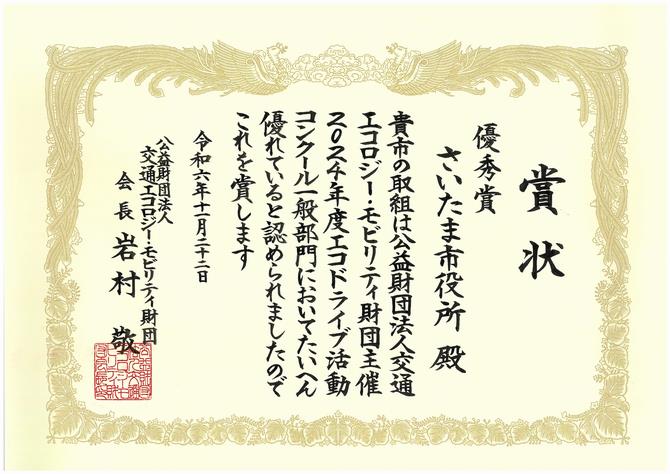 賞状
優秀賞
さいたま市役所 殿
貴市の取組は公益財団法人交通
エコロジー・モビリティ財団主催
2024年度エコドライブ活動
コンクール一般部門においてたいへん
優れていると認められましたので
これを賞します
令和六年十一月二十二日
公益財団法人
交通エコロジー・モビリティ財団
会長 岩村 敬